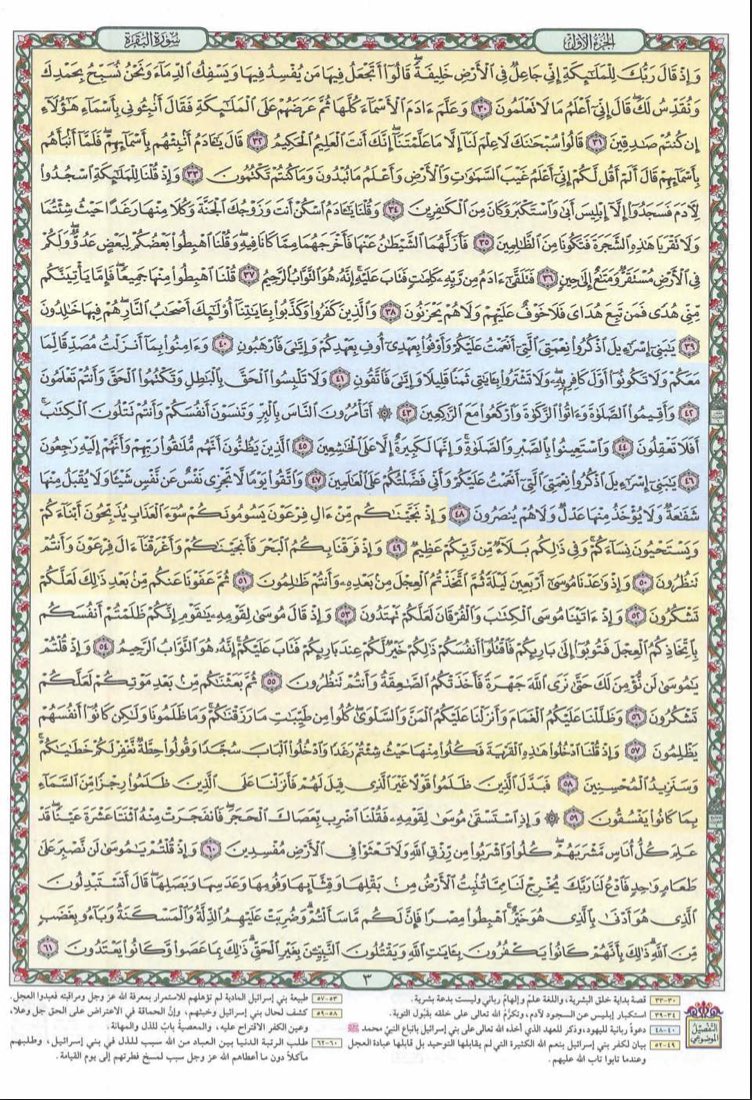 سُورَةُ البَقَرَةِ
الجُزْءُ الأَوَّلُ
وَإِذْ قَالَ رَبُّكَ لِلْمَلَٰٓئِكَةِ إِنِّى جَاعِلٌ فِى ٱلْأَرْضِ خَلِيفَةً ۖ قَالُوٓا۟ أَتَجْعَلُ فِيهَا مَن يُفْسِدُ فِيهَا وَيَسْفِكُ ٱلدِّمَآءَ وَنَحْنُ نُسَبِّحُ بِحَمْدِكَ
وَنُقَدِّسُ لَكَ ۖ قَالَ إِنِّىٓ أَعْلَمُ مَا لَا تَعْلَمُونَ ٣٠ وَعَلَّمَ ءَادَمَ ٱلْأَسْمَآءَ كُلَّهَا ثُمَّ عَرَضَهُمْ عَلَى ٱلْمَلَٰٓئِكَةِ فَقَالَ أَنۢبِـُٔونِى بِأَسْمَآءِ هَٰٓؤُلَآءِ
إِن كُنتُمْ صَٰدِقِينَ ٣١ قَالُوا۟ سُبْحَٰنَكَ لَا عِلْمَ لَنَآ إِلَّا مَا عَلَّمْتَنَآ ۖ إِنَّكَ أَنتَ ٱلْعَلِيمُ ٱلْحَكِيمُ ٣٢ قَالَ يَٰٓـَٔادَمُ أَنۢبِئْهُم بِأَسْمَآئِهِمْ ۖ فَلَمَّآ أَنۢبَأَهُم
بِأَسْمَآئِهِمْ قَالَ أَلَمْ أَقُل لَّكُمْ إِنِّىٓ أَعْلَمُ غَيْبَ ٱلسَّمَٰوَٰتِ وَٱلْأَرْضِ وَأَعْلَمُ مَا تُبْدُونَ وَمَا كُنتُمْ تَكْتُمُونَ ٣٣ وَإِذْ قُلْنَا لِلْمَلَٰٓئِكَةِ ٱسْجُدُوا۟
لِـَٔادَمَ فَسَجَدُوٓا۟ إِلَّآ إِبْلِيسَ أَبَىٰ وَٱسْتَكْبَرَ وَكَانَ مِنَ ٱلْكَٰفِرِينَ ٣٤ وَقُلْنَا يَٰٓـَٔادَمُ ٱسْكُنْ أَنتَ وَزَوْجُكَ ٱلْجَنَّةَ وَكُلَا مِنْهَا رَغَدًا حَيْثُ شِئْتُمَا
وَلَا تَقْرَبَا هَٰذِهِ ٱلشَّجَرَةَ فَتَكُونَا مِنَ ٱلظَّٰلِمِينَ ٣٥ فَأَزَلَّهُمَا ٱلشَّيْطَٰنُ عَنْهَا فَأَخْرَجَهُمَا مِمَّا كَانَا فِيهِ ۖ وَقُلْنَا ٱهْبِطُوا۟ بَعْضُكُمْ لِبَعْضٍ عَدُوٌّ ۖ وَلَكُمْ
فِى ٱلْأَرْضِ مُسْتَقَرٌّ وَمَتَٰعٌ إِلَىٰ حِينٍ ٣٦ فَتَلَقَّىٰٓ ءَادَمُ مِن رَّبِّهِۦ كَلِمَٰتٍ فَتَابَ عَلَيْهِ ۚ إِنَّهُۥ هُوَ ٱلتَّوَّابُ ٱلرَّحِيمُ ٣٧ قُلْنَا ٱهْبِطُوا۟ مِنْهَا جَمِيعًا ۖ فَإِمَّا يَأْتِيَنَّكُم
مِّنِّى هُدًى فَمَن تَبِعَ هُدَاىَ فَلَا خَوْفٌ عَلَيْهِمْ وَلَا هُمْ يَحْزَنُونَ ٣٨ وَٱلَّذِينَ كَفَرُوا۟ وَكَذَّبُوا۟ بِـَٔايَٰتِنَآ أُو۟لَٰٓئِكَ أَصْحَٰبُ ٱلنَّارِ ۖ هُمْ فِيهَا خَٰلِدُونَ
٣٩ يَٰبَنِىٓ إِسْرَٰٓءِيلَ ٱذْكُرُوا۟ نِعْمَتِىَ ٱلَّتِىٓ أَنْعَمْتُ عَلَيْكُمْ وَأَوْفُوا۟ بِعَهْدِىٓ أُوفِ بِعَهْدِكُمْ وَإِيَّٰىَ فَٱرْهَبُونِ ٤٠ وَءَامِنُوا۟ بِمَآ أَنزَلْتُ مُصَدِّقًا لِّمَا
مَعَكُمْ وَلَا تَكُونُوٓا۟ أَوَّلَ كَافِرٍۭ بِهِۦ ۖ وَلَا تَشْتَرُوا۟ بِـَٔايَٰتِى ثَمَنًا قَلِيلًا وَإِيَّٰىَ فَٱتَّقُونِ ٤١ وَلَا تَلْبِسُوا۟ ٱلْحَقَّ بِٱلْبَٰطِلِ وَتَكْتُمُوا۟ ٱلْحَقَّ وَأَنتُمْ تَعْلَمُونَ
٤٢ وَأَقِيمُوا۟ ٱلصَّلَوٰةَ وَءَاتُوا۟ ٱلزَّكَوٰةَ وَٱرْكَعُوا۟ مَعَ ٱلرَّٰكِعِينَ ٤٣ ۞ أَتَأْمُرُونَ ٱلنَّاسَ بِٱلْبِرِّ وَتَنسَوْنَ أَنفُسَكُمْ وَأَنتُمْ تَتْلُونَ ٱلْكِتَٰبَ ۚ
أَفَلَا تَعْقِلُونَ ٤٤ وَٱسْتَعِينُوا۟ بِٱلصَّبْرِ وَٱلصَّلَوٰةِ ۚ وَإِنَّهَا لَكَبِيرَةٌ إِلَّا عَلَى ٱلْخَٰشِعِينَ ٤٥ ٱلَّذِينَ يَظُنُّونَ أَنَّهُم مُّلَٰقُوا۟ رَبِّهِمْ وَأَنَّهُمْ إِلَيْهِ رَٰجِعُونَ
٤٦ يَٰبَنِىٓ إِسْرَٰٓءِيلَ ٱذْكُرُوا۟ نِعْمَتِىَ ٱلَّتِىٓ أَنْعَمْتُ عَلَيْكُمْ وَأَنِّى فَضَّلْتُكُمْ عَلَى ٱلْعَٰلَمِينَ ٤٧ وَٱتَّقُوا۟ يَوْمًا لَّا تَجْزِى نَفْسٌ عَن نَّفْسٍ شَيْـًٔا وَلَا يُقْبَلُ مِنْهَا
شَفَٰعَةٌ وَلَا يُؤْخَذُ مِنْهَا عَدْلٌ وَلَا هُمْ يُنصَرُونَ ٤٨ وَإِذْ نَجَّيْنَٰكُم مِّنْ ءَالِ فِرْعَوْنَ يَسُومُونَكُمْ سُوٓءَ ٱلْعَذَابِ يُذَبِّحُونَ أَبْنَآءَكُمْ
وَيَسْتَحْيُونَ نِسَآءَكُمْ ۚ وَفِى ذَٰلِكُم بَلَآءٌ مِّن رَّبِّكُمْ عَظِيمٌ ٤٩ وَإِذْ فَرَقْنَا بِكُمُ ٱلْبَحْرَ فَأَنجَيْنَٰكُمْ وَأَغْرَقْنَآ ءَالَ فِرْعَوْنَ وَأَنتُمْ
تَنظُرُونَ ٥٠ وَإِذْ وَٰعَدْنَا مُوسَىٰٓ أَرْبَعِينَ لَيْلَةً ثُمَّ ٱتَّخَذْتُمُ ٱلْعِجْلَ مِنۢ بَعْدِهِۦ وَأَنتُمْ ظَٰلِمُونَ ٥١ ثُمَّ عَفَوْنَا عَنكُم مِّنۢ بَعْدِ ذَٰلِكَ لَعَلَّكُمْ
تَشْكُرُونَ ٥٢ وَإِذْ ءَاتَيْنَا مُوسَى ٱلْكِتَٰبَ وَٱلْفُرْقَانَ لَعَلَّكُمْ تَهْتَدُونَ ٥٣ وَإِذْ قَالَ مُوسَىٰ لِقَوْمِهِۦ يَٰقَوْمِ إِنَّكُمْ ظَلَمْتُمْ أَنفُسَكُم
بِٱتِّخَاذِكُمُ ٱلْعِجْلَ فَتُوبُوٓا۟ إِلَىٰ بَارِئِكُمْ فَٱقْتُلُوٓا۟ أَنفُسَكُمْ ذَٰلِكُمْ خَيْرٌ لَّكُمْ عِندَ بَارِئِكُمْ فَتَابَ عَلَيْكُمْ ۚ إِنَّهُۥ هُوَ ٱلتَّوَّابُ ٱلرَّحِيمُ ٥٤ وَإِذْ قُلْتُمْ
يَٰمُوسَىٰ لَن نُّؤْمِنَ لَكَ حَتَّىٰ نَرَى ٱللَّهَ جَهْرَةً فَأَخَذَتْكُمُ ٱلصَّٰعِقَةُ وَأَنتُمْ تَنظُرُونَ ٥٥ ثُمَّ بَعَثْنَٰكُم مِّنۢ بَعْدِ مَوْتِكُمْ لَعَلَّكُمْ
تَشْكُرُونَ ٥٦ وَظَلَّلْنَا عَلَيْكُمُ ٱلْغَمَامَ وَأَنزَلْنَا عَلَيْكُمُ ٱلْمَنَّ وَٱلسَّلْوَىٰ ۖ كُلُوا۟ مِن طَيِّبَٰتِ مَا رَزَقْنَٰكُمْ ۖ وَمَا ظَلَمُونَا وَلَٰكِن كَانُوٓا۟ أَنفُسَهُمْ
يَظْلِمُونَ ٥٧ وَإِذْ قُلْنَا ٱدْخُلُوا۟ هَٰذِهِ ٱلْقَرْيَةَ فَكُلُوا۟ مِنْهَا حَيْثُ شِئْتُمْ رَغَدًا وَٱدْخُلُوا۟ ٱلْبَابَ سُجَّدًا وَقُولُوا۟ حِطَّةٌ نَّغْفِرْ لَكُمْ خَطَٰيَٰكُمْ ۚ
وَسَنَزِيدُ ٱلْمُحْسِنِينَ ٥٨ فَبَدَّلَ ٱلَّذِينَ ظَلَمُوا۟ قَوْلًا غَيْرَ ٱلَّذِى قِيلَ لَهُمْ فَأَنزَلْنَا عَلَى ٱلَّذِينَ ظَلَمُوا۟ رِجْزًا مِّنَ ٱلسَّمَآءِ
بِمَا كَانُوا۟ يَفْسُقُونَ ٥٩ ۞ وَإِذِ ٱسْتَسْقَىٰ مُوسَىٰ لِقَوْمِهِۦ فَقُلْنَا ٱضْرِب بِّعَصَاكَ ٱلْحَجَرَ ۖ فَٱنفَجَرَتْ مِنْهُ ٱثْنَتَا عَشْرَةَ عَيْنًا ۖ قَدْ
عَلِمَ كُلُّ أُنَاسٍ مَّشْرَبَهُمْ ۖ كُلُوا۟ وَٱشْرَبُوا۟ مِن رِّزْقِ ٱللَّهِ وَلَا تَعْثَوْا۟ فِى ٱلْأَرْضِ مُفْسِدِينَ ٦٠ وَإِذْ قُلْتُمْ يَٰمُوسَىٰ لَن نَّصْبِرَ عَلَىٰ
طَعَامٍ وَٰحِدٍ فَٱدْعُ لَنَا رَبَّكَ يُخْرِجْ لَنَا مِمَّا تُنۢبِتُ ٱلْأَرْضُ مِنۢ بَقْلِهَا وَقِثَّآئِهَا وَفُومِهَا وَعَدَسِهَا وَبَصَلِهَا ۖ قَالَ أَتَسْتَبْدِلُونَ
ٱلَّذِى هُوَ أَدْنَىٰ بِٱلَّذِى هُوَ خَيْرٌ ۚ ٱهْبِطُوا۟ مِصْرًا فَإِنَّ لَكُم مَّا سَأَلْتُمْ ۗ وَضُرِبَتْ عَلَيْهِمُ ٱلذِّلَّةُ وَٱلْمَسْكَنَةُ وَبَآءُو بِغَضَبٍ
مِّنَ ٱللَّهِ ۗ ذَٰلِكَ بِأَنَّهُمْ كَانُوا۟ يَكْفُرُونَ بِـَٔايَٰتِ ٱللَّهِ وَيَقْتُلُونَ ٱلنَّبِيِّـۧنَ بِغَيْرِ ٱلْحَقِّ ۗ ذَٰلِكَ بِمَا عَصَوا۟ وَّكَانُوا۟ يَعْتَدُونَ ٦١
٣
التفصيل الموضوعي
٣٠-٣٣ قصة بداية خلق البشرية، واللغة علمٌ وإلهامٌ رباني وليست بدعة بشرية.
٣٤-٣٩ استكبار إبليس عن السجود لآدم، وتكرُّم الله تعالى على خلقه بقَبول التوبة.
٤٠-٤٨ دعوةٌ ربانية لليهود، وذكر للعهد الذي أخذه الله تعالى على بني إسرائيل باتباع النبيّ محمد ﷺ
٤٩-٥٢ بيان لكفر بني إسرائيل بنعم الله الكثيرة التي لم يقابلها التوحيد بل قابلها عبادة العجل
وعندما تابوا تاب الله عليهم.
٥٣-٥٧ طبيعة بني إسرائيل المادية لم تؤهلهم للاستمرار بمعرفة الله عز وجل ومراقبته فعبدوا العجل.
٥٨-٥٩ كشف لحال بني إسرائيل وخبثهم، وإنَّ الحماقة في الاعتراض على الحق جل وعلا،
وعين الكفر الاقتراح عليه، والمعصيةُ بابٌ للذل والمهانة.
٦٠-٦٢ طلب الرتبة الدنيا بين العباد من الله سبب للذل في بني إسرائيل، وطلبهم
مأكلاً دون ما أعطاهم الله عز وجل سبب لمسخ فطرتهم إلى يوم القيامة.